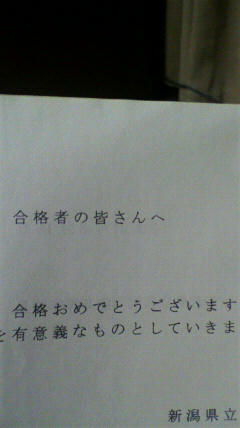 合格者の皆さんへ
合格おめでとうございます
を有意義なものとしていきま
新潟県立